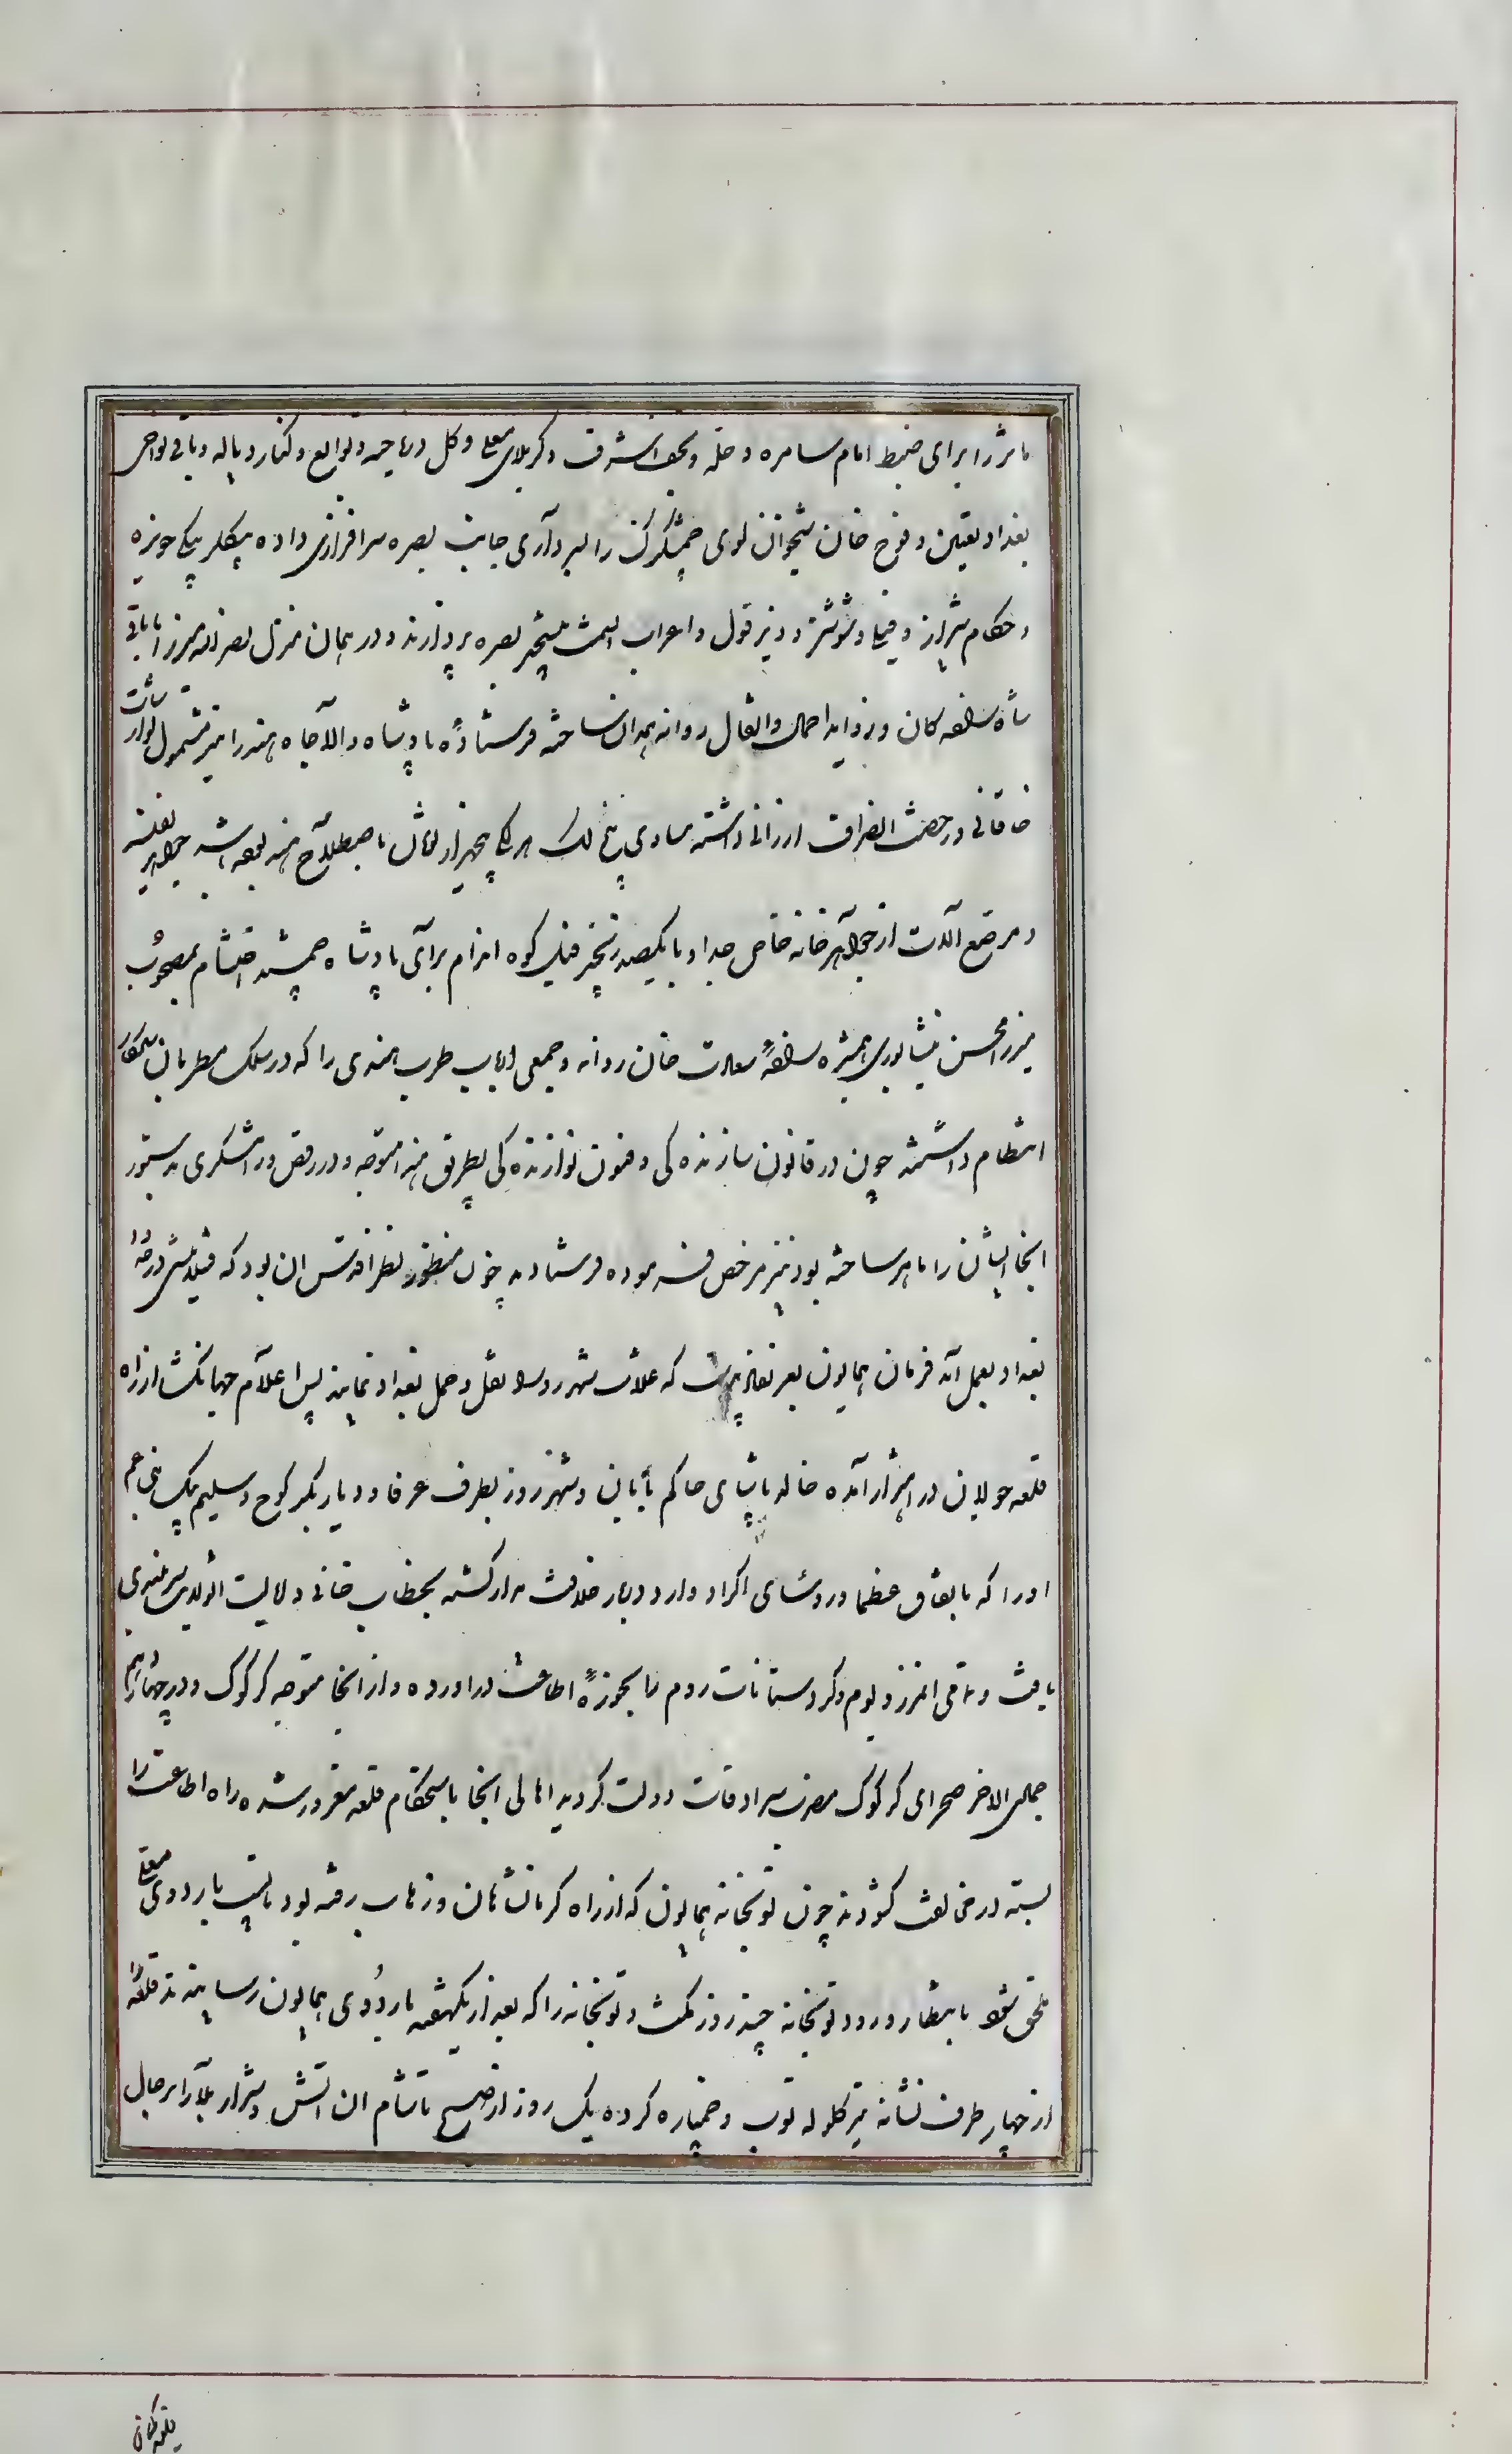 مامور را برای ضبط امام سامره و حله و نجف اشرف و کربلای معلی و کل دیاجه و توابع و کنار دیاله و باقی نواحی
بغداد تعیین و فوج خان شیخوانلوی چمشکزک را بسرداری جانب بصره سرافرازی داده بیکلربیکی حویزه
و حکام شیراز و فیلی و شوشتر و دزفول و اعراب السمت بتسخیر بصره پردازند و در همان منزل نصراله میرزا با باقی
شاهزادکان و زواید احمال و اثقال روانه همدان ساخته فرستاده پادشاه والاجاه هند را نیز مشمول نوازشات
خاقانی و رخصت انصراف ارزانی داشته مساوی پنج لک هر یکی پنجهزار تومان باصطلاح هند بوده باشد جواهر نفیسه
و مرصع آلات از جواهر خانه خاص جدا و با یکصد زنجیر فیل کوه اندام برای پادشاه جمشید احتشام بمصحوب
میرزا محسن نیشابوری همشیره زاده سعادت خان روانه و جمعی ارباب طرب هندی را که در سلک مطربان سرکار
انتظام داشتند چون در قانون سازنده کی و فنون نوازنده کی بطریق هند متوجه و در رقص و رامشکری بدستور
انجا ایشان را ماهر ساخته بود نیز مرخص فرموده فرستادند چون منظور نظر اقدس ان بود که قیلامیشی در حوالی
بغداد بعمل آید فرمان همایون بعز نفاذ پیوست که غلات شهرزور را نقل و حمل بغداد نمایند پس اعلام جهانکشا از راه
قلعه جولان در اهتزاز آمده خالد پاشای حاکم بابان و شهرزور بطرف عرفا و دیار بکر کوچ و سلیم بیک بنی عم
او را که باتفاق عظما و روسای اکراد وارد دربار خلافت مدار کشته بخطاب خانی و لایت الولدی سربلندی
یافت و تمامی المرز و بوم و کردستانات روم را بحوزه اطاعت در اورده و از انجا متوجه کرکوک و در چهاردهم
جمادی الاخر صحرای کرکوک مضرب سرادقات دولت کردید اهالی انجا باستحکام قلعه مغرور شده راه اطاعت را
بسته در مخالفت کشودند چون توپخانه همایون که از راه کرمانشاهان و زهاب رفته بود بایست باردوی معلی
ملحق شود بانتظار ورود توپخانه چند روز مکث و توپخانه را که بعد از یکهفته باردوی همایون رسانیدند قلعه را
از چهار طرف نشانه تیر کلوله توپ و خمپاره کرده یک روز از صبح تا شام ان آتش و شرار بلا را بر حال
قلعه کیان